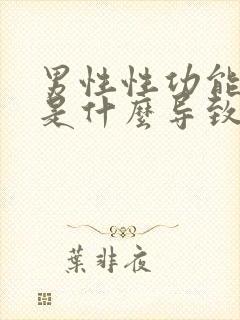 男性性功能
是什麼导致
葉非夜